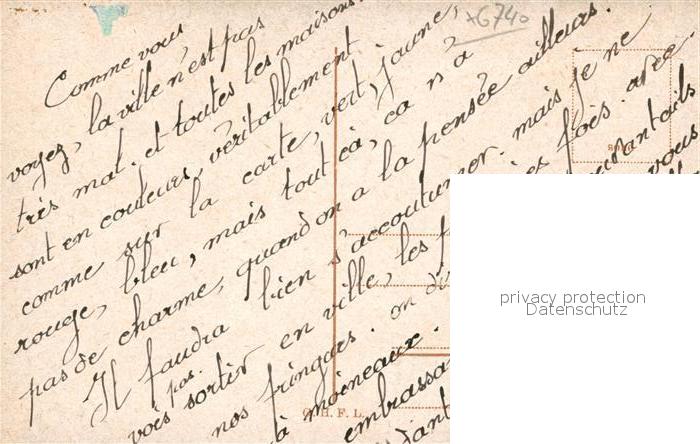 Comme vous
voyez, la ville n'est pas
très mal. et toutes les maisons.
sont en couleurs, véritablement
comme sur la carte, vert, jaune,
rouge, bleu, mais tout cà, ca n'a
pas de charme, quand on a la pensée ailleurs.
Il faudra bien s'accoutumer. mais je ne
vois pas. sortir en ville, les fois. avec.
nos fringues. on
à moineaux.
vous
embrassa
x6740
C. H. F. L.
privacy protection
Datenschutz